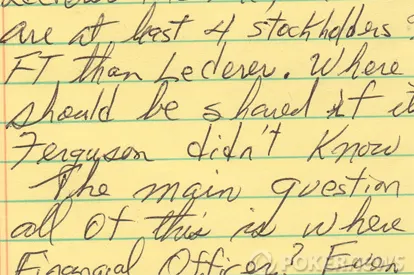 are at least 4 stockholders
FT than Lederer. Where
should be shared if
Ferguson didn't know
The main question
all of this is where
Financial Officer? Even
POKERNEWS